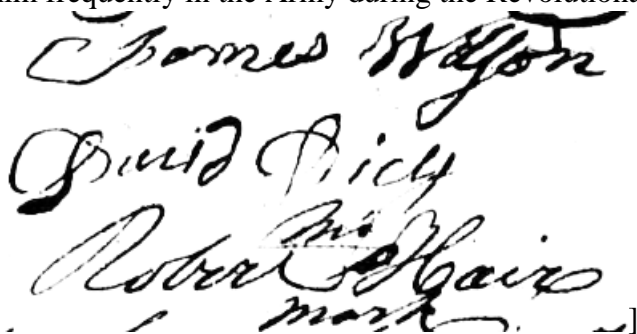 him frequently in the Army during the Revolutiona
James Wilson
David Dick
his
Robert Hair
mark